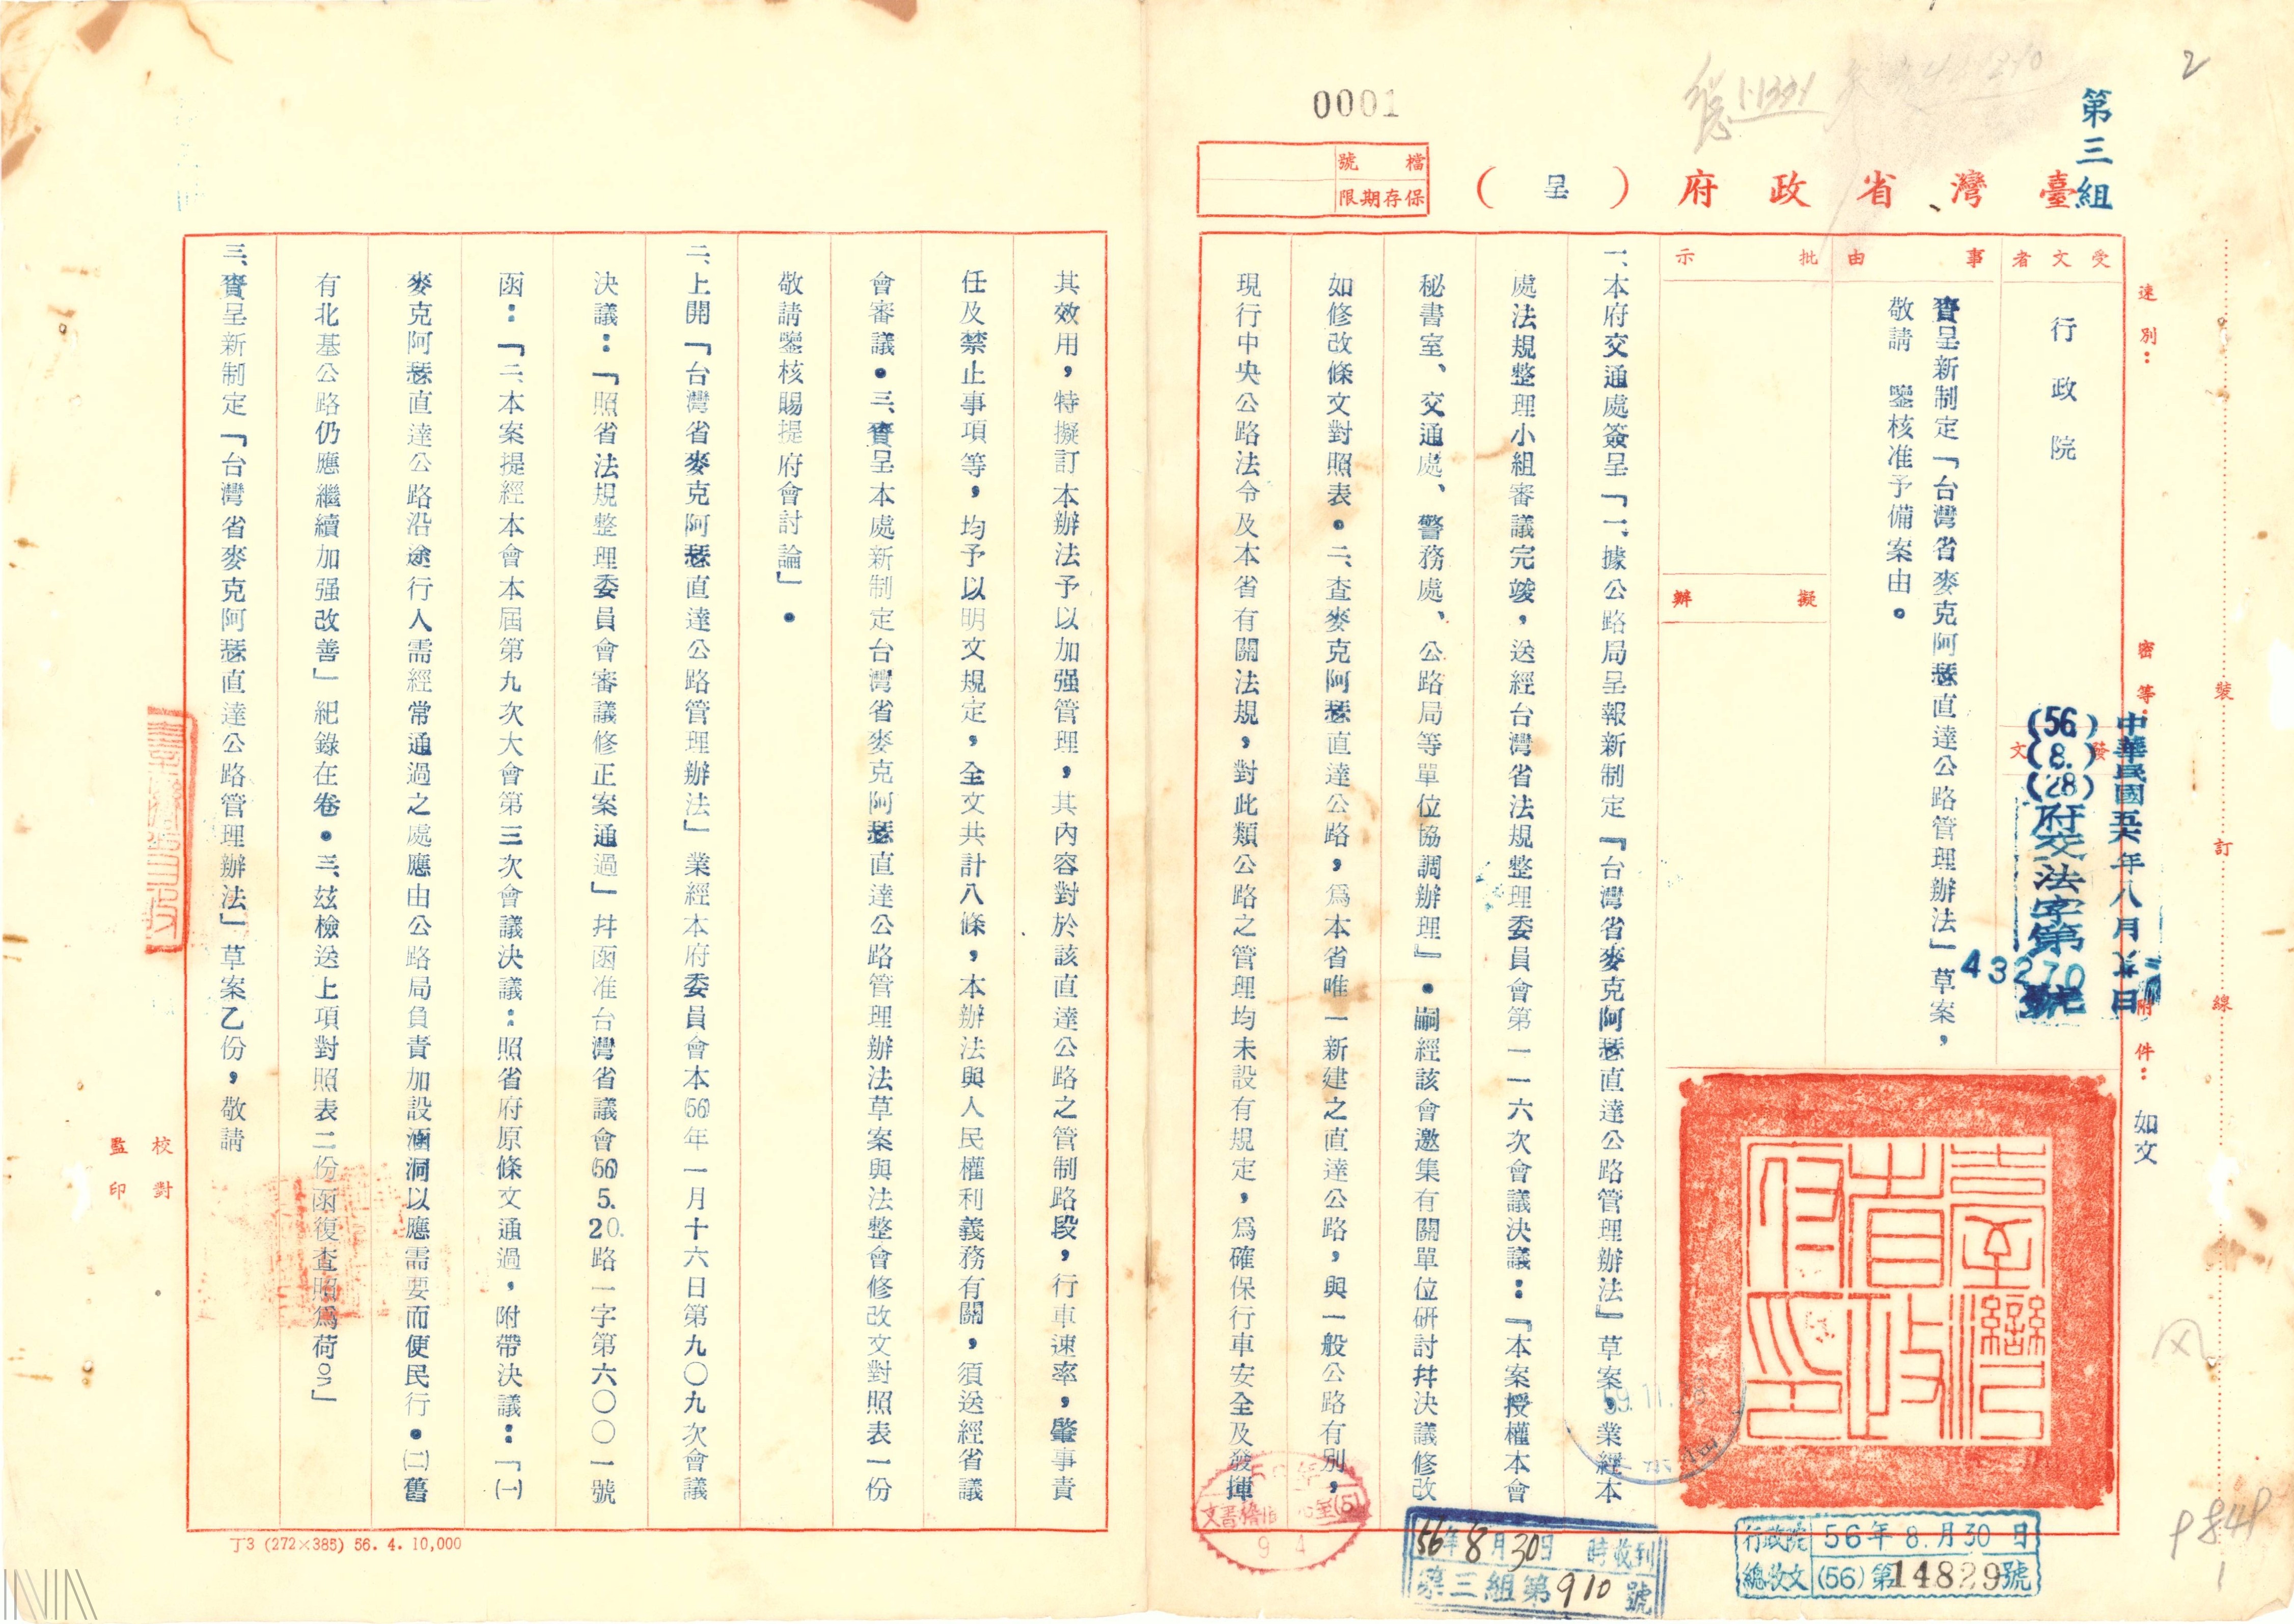 2
第三組
0001
檔號
保存期限
臺灣省政府（呈）
裝訂線
速別：
密等：
附件：如文
中華民國五六年八月
(56)(8.)(28)府交法字第43270號
受文者
行政院
發文
事由
賫呈新制定「台灣省麥克阿瑟直達公路管理辦法」草案，
敬請　鑒核准予備案由。
批示
擬辦
一、本府交通處簽呈「一、據公路局呈報新制定『台灣省麥克阿瑟直達公路管理辦法』草案，業經本
處法規整理小組審議完竣，送經台灣省法規整理委員會第一一六次會議決議：『本案授權本會
秘書室、交通處、警務處、公路局等單位協調辦理』。嗣經該會邀集有關單位研討幷決議修改
如修改條文對照表。二、查麥克阿瑟直達公路，爲本省唯一新建之直達公路，與一般公路有別，
現行中央公路法令及本省有關法規，對此類公路之管理均未設有規定，爲確保行車安全及發揮
其效用，特擬訂本辦法予以加强管理，其內容對於該直達公路之管制路段，行車速率，肇事責
任及禁止事項等，均予以明文規定，全文共計八條，本辦法與人民權利義務有關，須送經省議
會審議。三、賫呈本處新制定台灣省麥克阿瑟直達公路管理辦法草案與法整會修改文對照表一份
敬請鑒核賜提府會討論」。
二、上開「台灣省麥克阿瑟直達公路管理辦法」業經本府委員會本(56)年一月十六日第九〇九次會議
決議：「照省法規整理委員會審議修正案通過」幷函准台灣省議會(56)5.20.路一字第六〇〇一號
函：「二、本案提經本會本屆第九次大會第三次會議決議：照省府原條文通過，附帶決議：「㈠
麥克阿瑟直達公路沿途行人需經常通過之處應由公路局負責加設涵洞以應需要而便民行。㈡舊
有北基公路仍應繼續加强改善」紀錄在卷。三、玆檢送上項對照表二份函復查照爲荷。」
三、賫呈新制定「台灣省麥克阿瑟直達公路管理辦法」草案乙份，敬請
校對
監印
丁3 (272×385) 56. 4. 10,000
臺灣省政府印
9 4
56年8月30日 時收到
第三組第910號
行政院 56年8月30日
總收文 (56)第14829號